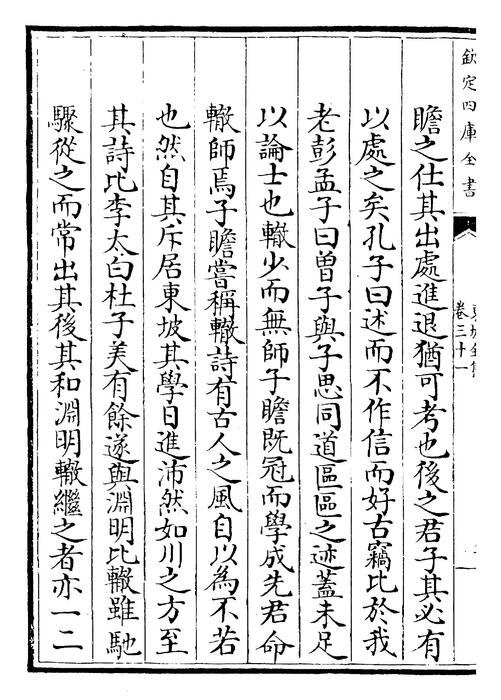 欽定四庫全書
卷三十一
瞻之仕其出處進退猶可考也後之君子其必有
以處之矣孔子曰述而不作信而好古竊比於我
老彭孟子曰曽子與子思同道區區之迹蓋未足
以論士也轍少而無師子瞻既冠而學成先君命
轍師焉子瞻嘗稱轍詩有古人之風自以為不若
也然自其斥居東坡其學日進沛然如川之方至
其詩比李太白杜子美有餘遂與淵明比轍雖馳
驟從之而常出其後其和淵明轍繼之者亦一二